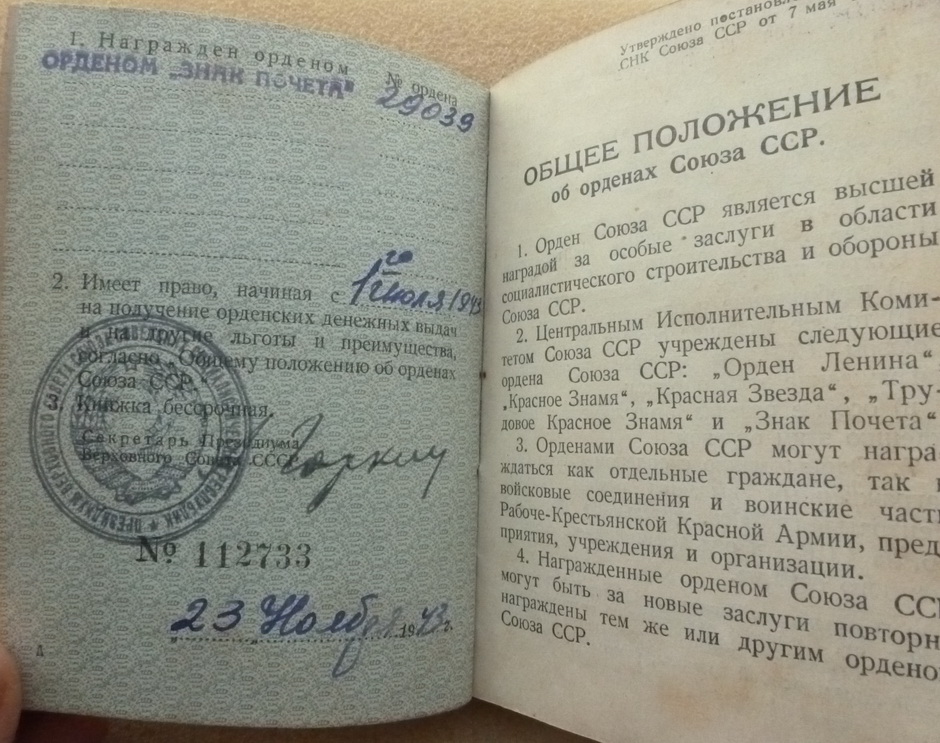 1. Награжден орденом
ОРДЕНОМ „ЗНАК ПОЧЕТА"
№ ордена
29039
2. Имеет право, начиная с 1го июля 1943
на получение орденских денежных выдач
и на другие льготы и преимущества,
согласно „Общему положению об орденах
Союза ССР."
3. Книжка бессрочная.
Секретарь Президиума
Верховного Совета СССР
Горкин
№ 112733
23 Ноября 1943 г.
Утверждено
СНК Союза ССР от 7 мая
ОБЩЕЕ ПОЛОЖЕНИЕ
об орденах Союза ССР.
1. Орден Союза ССР является высшей
наградой за особые заслуги в области
социалистического строительства и обороны
Союза ССР.
2. Центральным Исполнительным Коми-
тетом Союза ССР учреждены следующие
ордена Союза ССР: „Орден Ленина"
„Красное Знамя", „Красная Звезда", „Тру-
довое Красное Знамя" и „Знак Почета"
3. Орденами Союза ССР могут награ-
ждаться как отдельные граждане, так
войсковые соединения и воинские част
Рабоче-Крестьянской Красной Армии, пред
приятия, учреждения и организации.
4. Награжденные орденом Союза СС
могут быть за новые заслуги повторн
награждены тем же или другим ордено
Союза ССР.